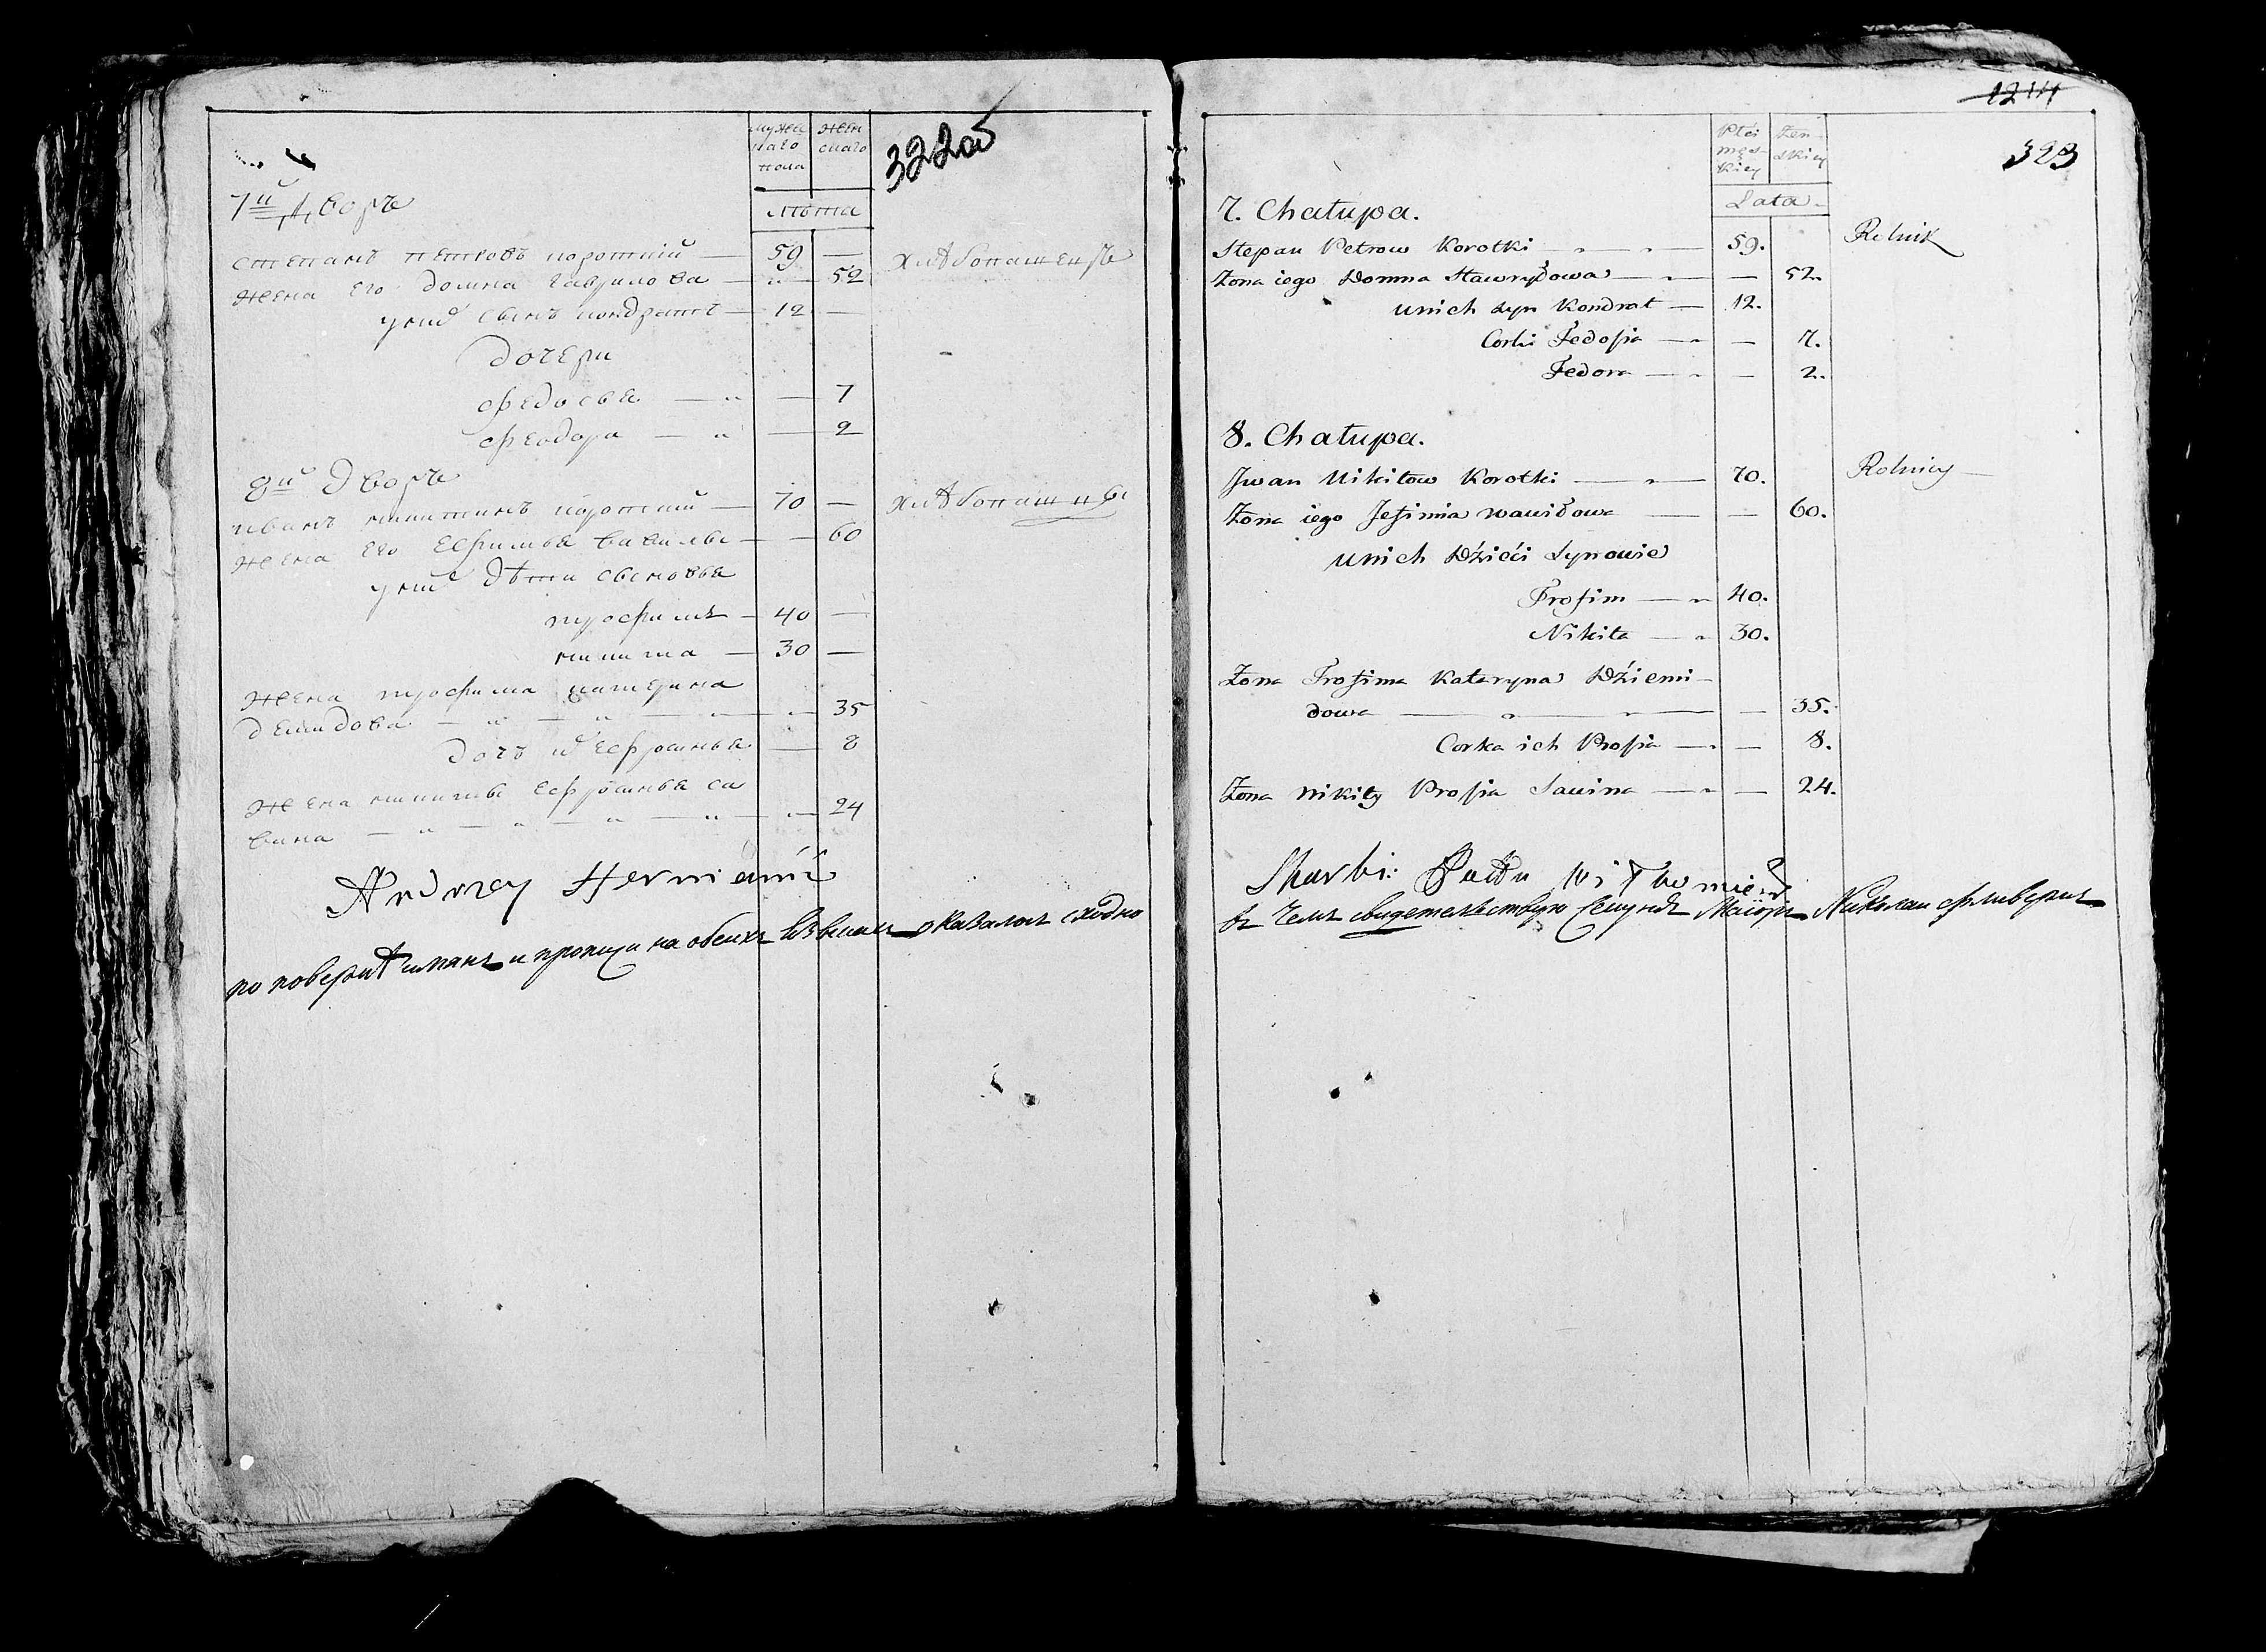 322об
мужескаго пола
женскаго
Лѣта
7й Дворъ
степанъ петровъ короткій — 59 — хлѣбопашецъ
жена его домна гаврилова — 52
у них сынъ кондратъ — 12 —
дочери
федосья — 7
феодора — 2
8й дворъ
иванъ никитинъ короткій — 70 — хлѣбопашцы
жена его Ефимья — 60
у них дѣти сыновья
трофимъ — 40 —
никита — 30 —
жена трофима катерина
демидова — 35
дочь их Ефросинья — 8
жена никиты Ефросинья са
вина — 24
Andrzey
по поверке и на обеихъ оказалось сходно
1214
323
Płci męskiey
Żenskiey
Lata
7. Chałupa.
Stepan Petrow Korotki — 59. Rolnik
Żona iego Domna Hawryłowa — 52.
u nich syn Kondrat — 12.
Corki Fedosia — 7.
Fedora — 2.
8. Chałupa.
Jwan Nikitow Korotki — 70. Rolnicy
Żona iego Jefimia — 60.
u nich Dzieci Synowie
Trofim — 40.
Nikita — 30.
Żona Trofima Kataryna Dziemi-
dowa — 35.
Corka ich Prosia — 8.
Żona Nikity Prosia Sawina — 24.
Skarbi:
въ чемъ свидетельствую Секундъ Маіоръ Николай